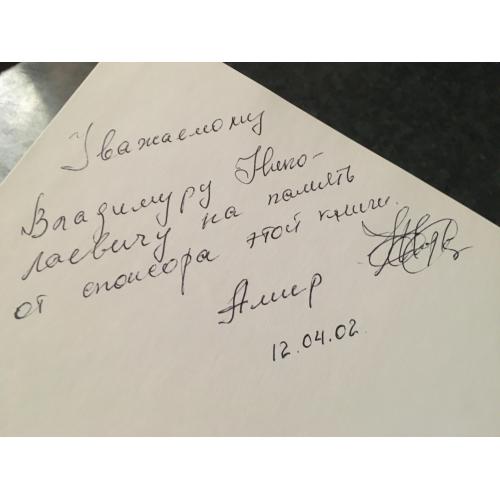 Уважаемому
Владимиру Нико-
лаевичу на память
от спонсора этой книги.
Амир
12.04.02.